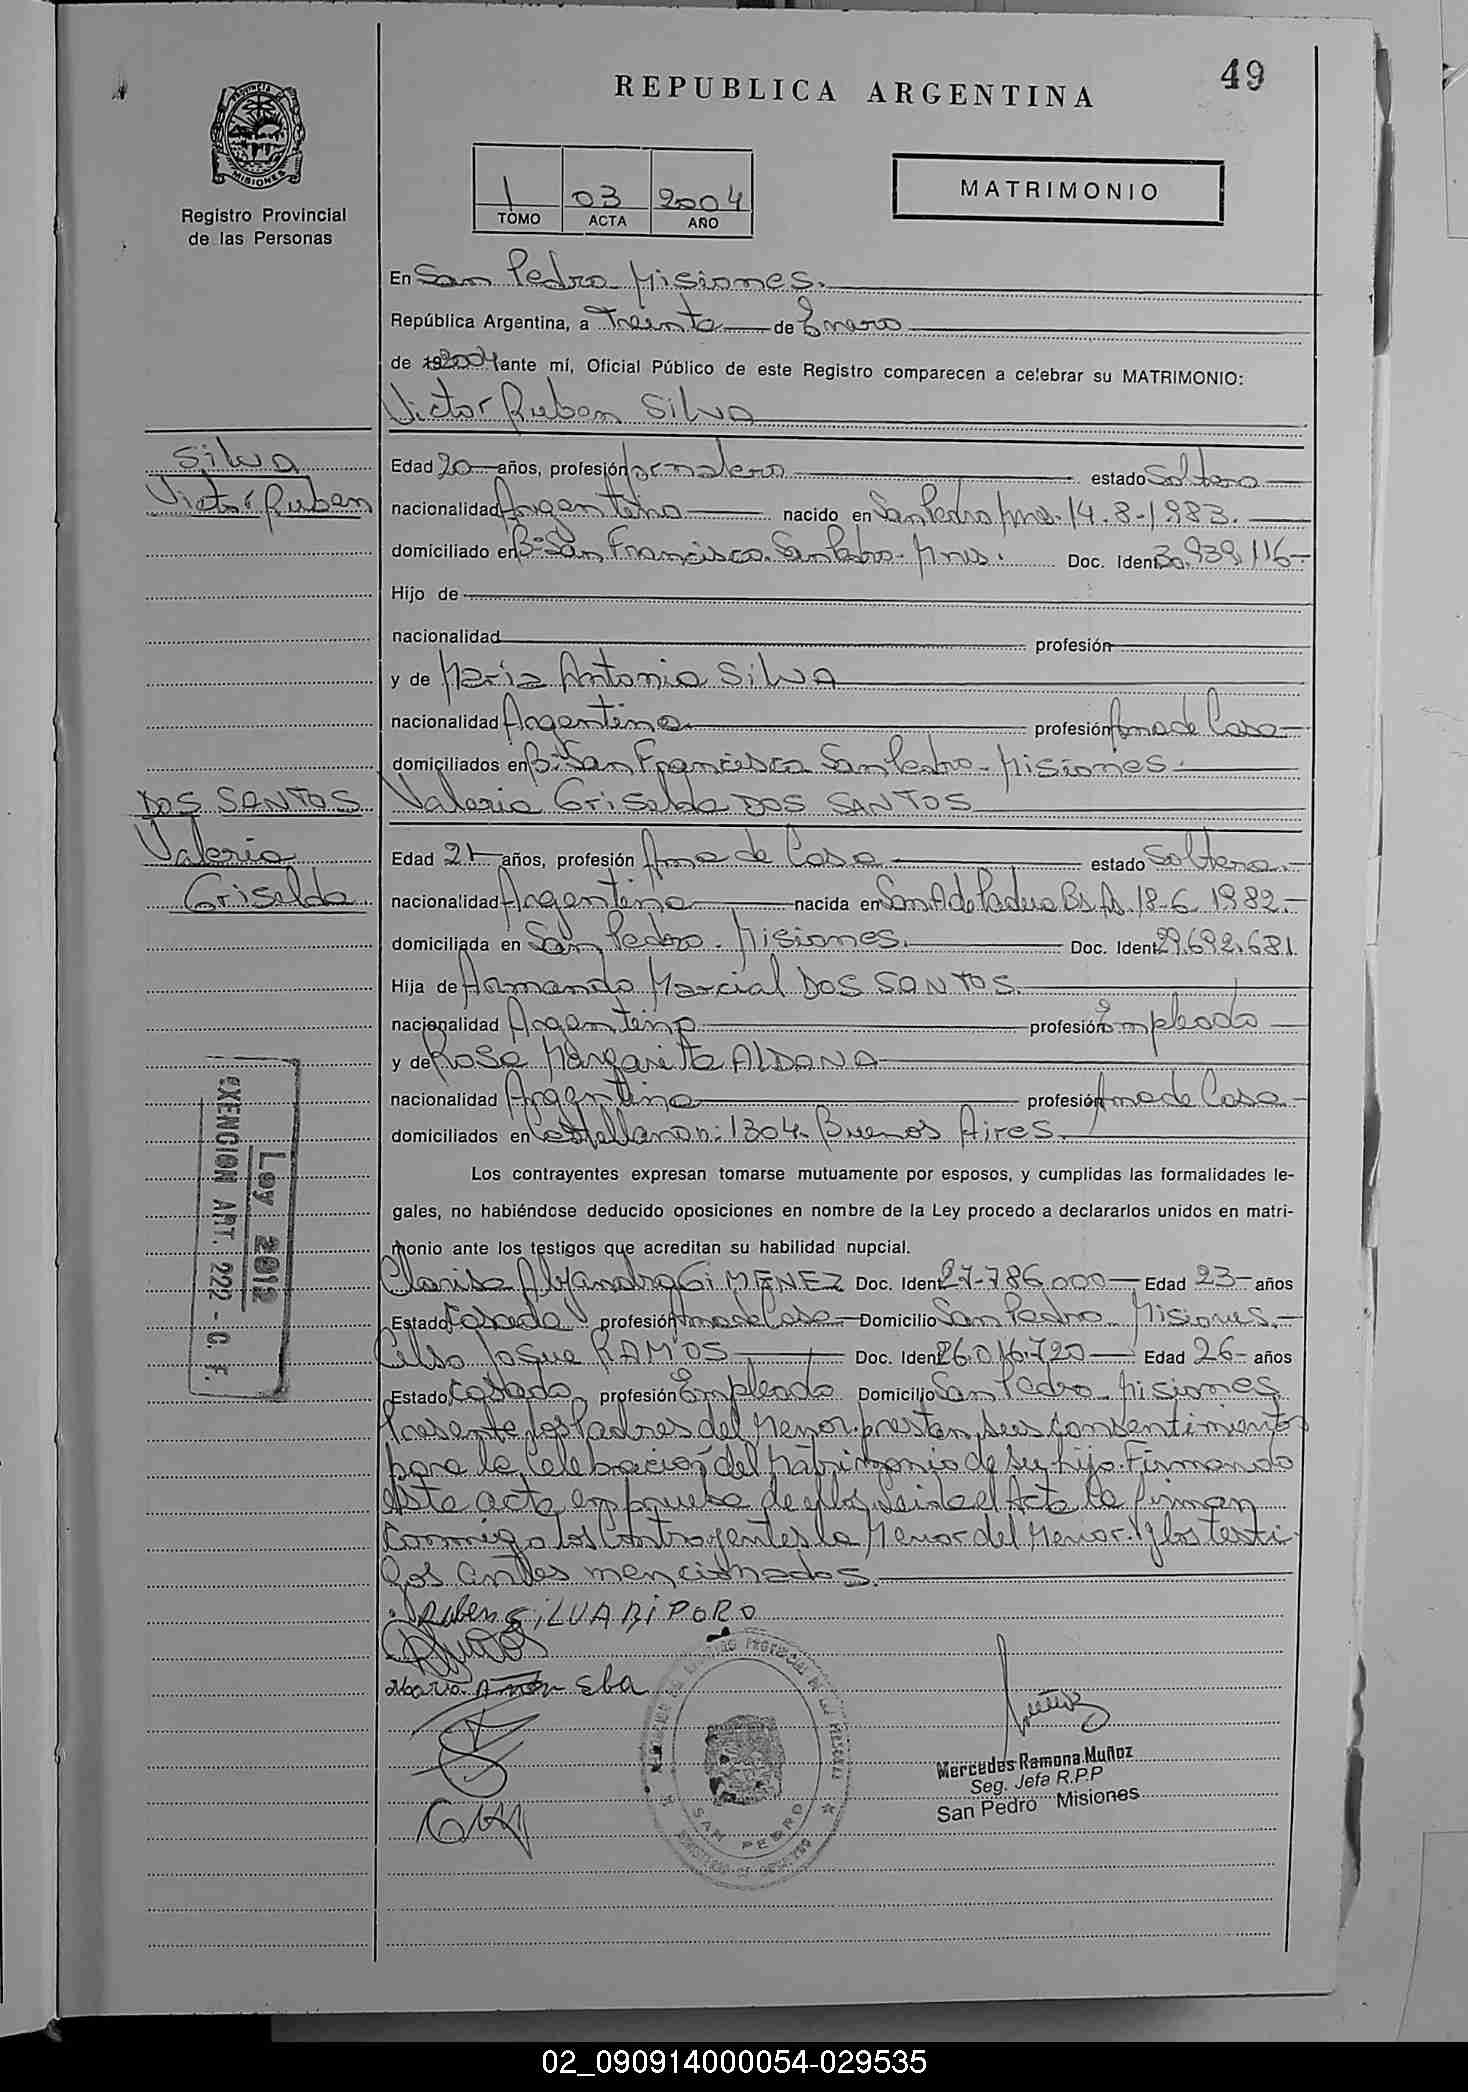 49
REPUBLICA ARGENTINA
PROVINCIA DE MISIONES
Registro Provincial
de las Personas
1 03 2004
TOMO ACTA AÑO
MATRIMONIO
En San Pedro Misiones.
República Argentina, a Treinta de Enero
de 19 2004 ante mí, Oficial Público de este Registro comparecen a celebrar su MATRIMONIO:
Victor Ruben Silva
Silva
Victor Ruben
Edad 20 años, profesión Jornalero estado Soltero
nacionalidad Argentino nacido en San Pedro Mnes. 14.8-1983.
domiciliado en Bº San Francisco. San Pedro. Mnes. Doc. Ident. 30.939.116-
Hijo de
nacionalidad profesión
y de Maria Antonia Silva
nacionalidad Argentina profesión Ama de Casa
domiciliados en Bº San Francisco San Pedro - Misiones.
DOS SANTOS
Valeria
Griselda
Valeria Griselda DOS SANTOS
Edad 21 años, profesión Ama de Casa estado Soltera.-
nacionalidad Argentina nacida en San A de Padua Bs. As. 18-6. 1982.-
domiciliada en San Pedro. Misiones. Doc. Ident. 29.692.681.
Hija de Armando Marcial DOS SANTOS
nacionalidad Argentino profesión Empleado
y de Rosa Margarita ALDANA
nacionalidad Argentina profesión Ama de Casa-
domiciliados en 1304. Buenos Aires.
Los contrayentes expresan tomarse mutuamente por esposos, y cumplidas las formalidades le-
gales, no habiéndose deducido oposiciones en nombre de la Ley procedo a declararlos unidos en matri-
monio ante los testigos que acreditan su habilidad nupcial.
Ley. 2012
EXENCION ART. 222 - C. F.
Clarisa Alejandra GIMENEZ Doc. Ident. 27-786.000 Edad 23- años
Estado Casada profesión Ama de Casa Domicilio San Pedro Misiones.-
Celso Josue RAMOS Doc. Ident. 26.016.720 Edad 26- años
Estado Casado profesión Empleado Domicilio San Pedro. Misiones
Presente los Padres del Menor. prestan sus consentimiento
para la Celebración del Matrimonio de su hijo. Firmando
este acta en prueba de ellos. Leida el Acta La firman
conmigo los Contrayentes la Menor del Menor. y los testi
gos antes mencionados.
Ruben SILVA
Maria
SAN PEDRO
Mercedes Ramona Muñoz
Seg. Jefa R.P.P
San Pedro Misiones
02_090914000054-029535